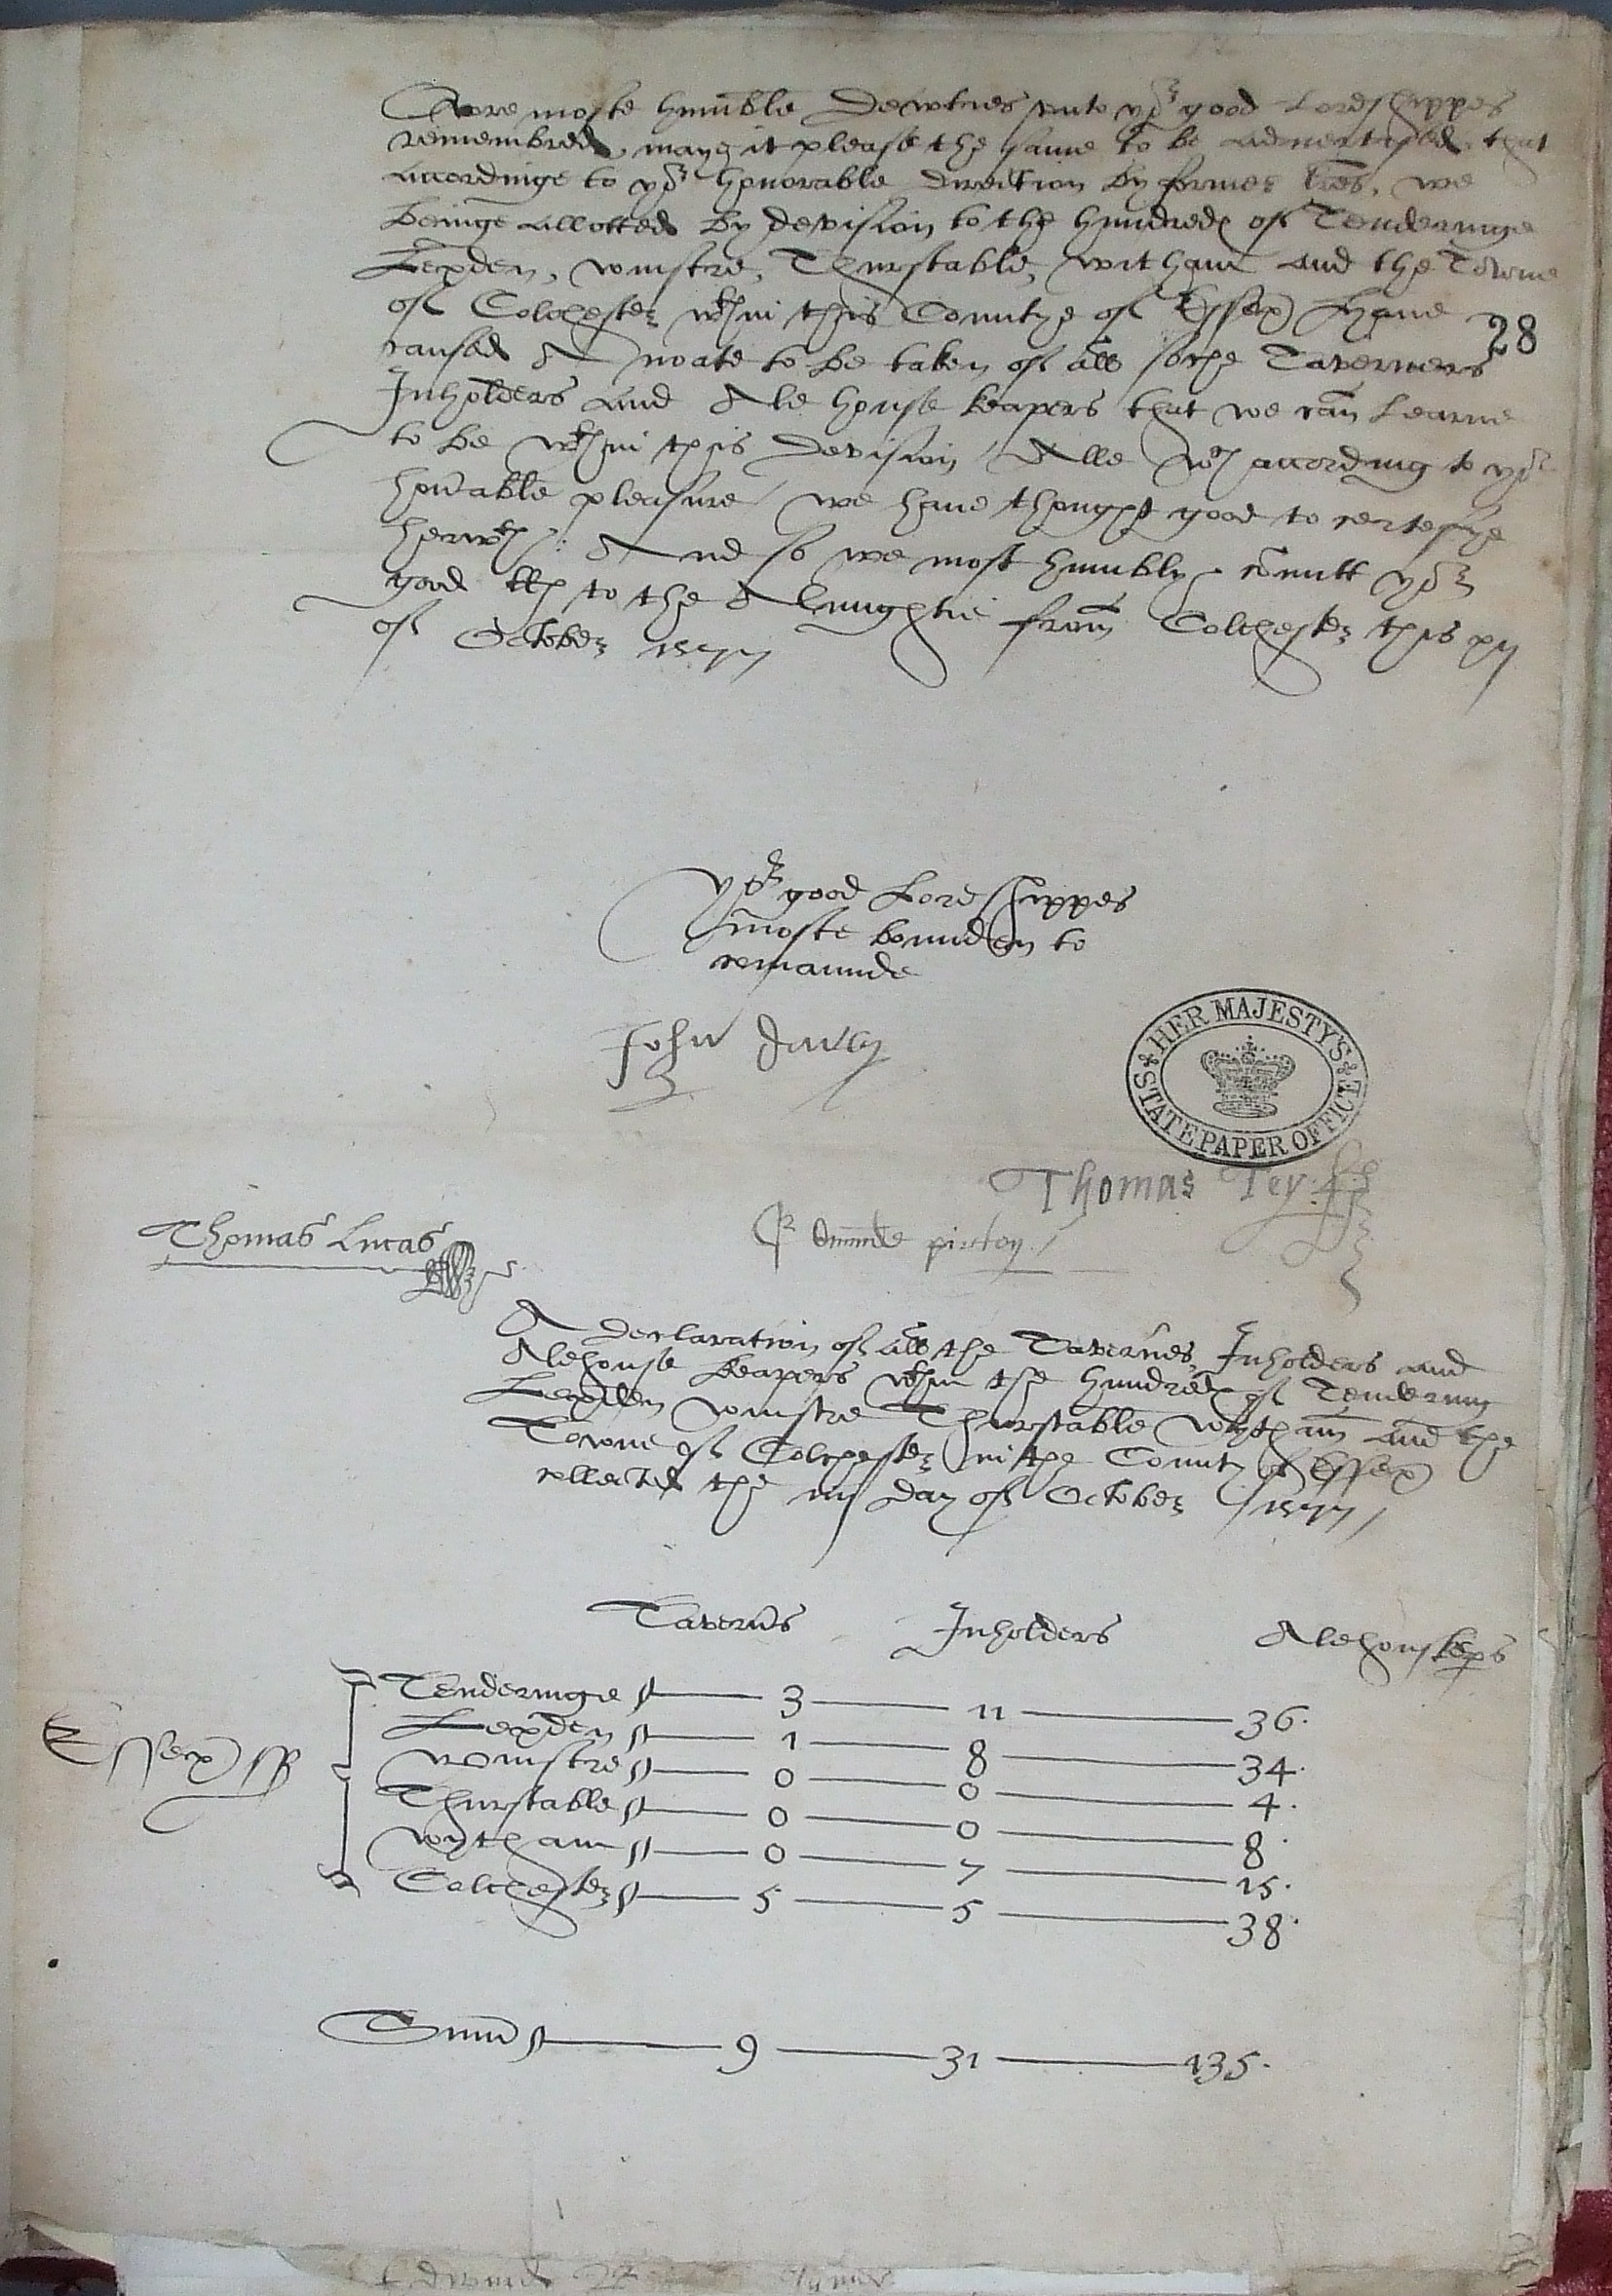 Owre moste humble Dewties vnto yor good Lordshippes
remembred, maye it please the same to be aduertised, that
accordinge to yor honorable direction by former lres, we
beinge allotted by devision to the hundred of Tenderinge
Lexden, winstre, Thurstable, witham and the Towne
of Colchester wthin this Countye of Essex, haue
28
caused A noate to be taken of all sutche Taverners
Inholders and Ale house keapers that we can Learne
to be wthin this devision / Alle wch according to yor
honable pleasure / we haue thought good to certefye
herwth /: And so we most humbly comitt yor
good llps to the Almightie from Colchester this xij
of October 1577
yor good Lordshippes
moste bounden to
remainde
John
Thomas Tey
Thomas Lucas
Edmunde pirton /
A declaration of all the Taverns, Inholders and
Alehouse keapers wthin the hundred of Tendering
Lexden winstre Thurstable wytham and the
Towne of Colchester in the County of Essex
collected the day of October / 1577 /
Taverns Inholders Alehouskeps
Essex ss
Tenderinge 3 11 36.
Lexden 1 8 34.
winstre 0 0 4.
Thurstable 0 0 8.
wytham 0 7 15.
Colchester 5 5 38.
Sum 9 31 135.
HER MAJESTY'S STATE PAPER OFFICE